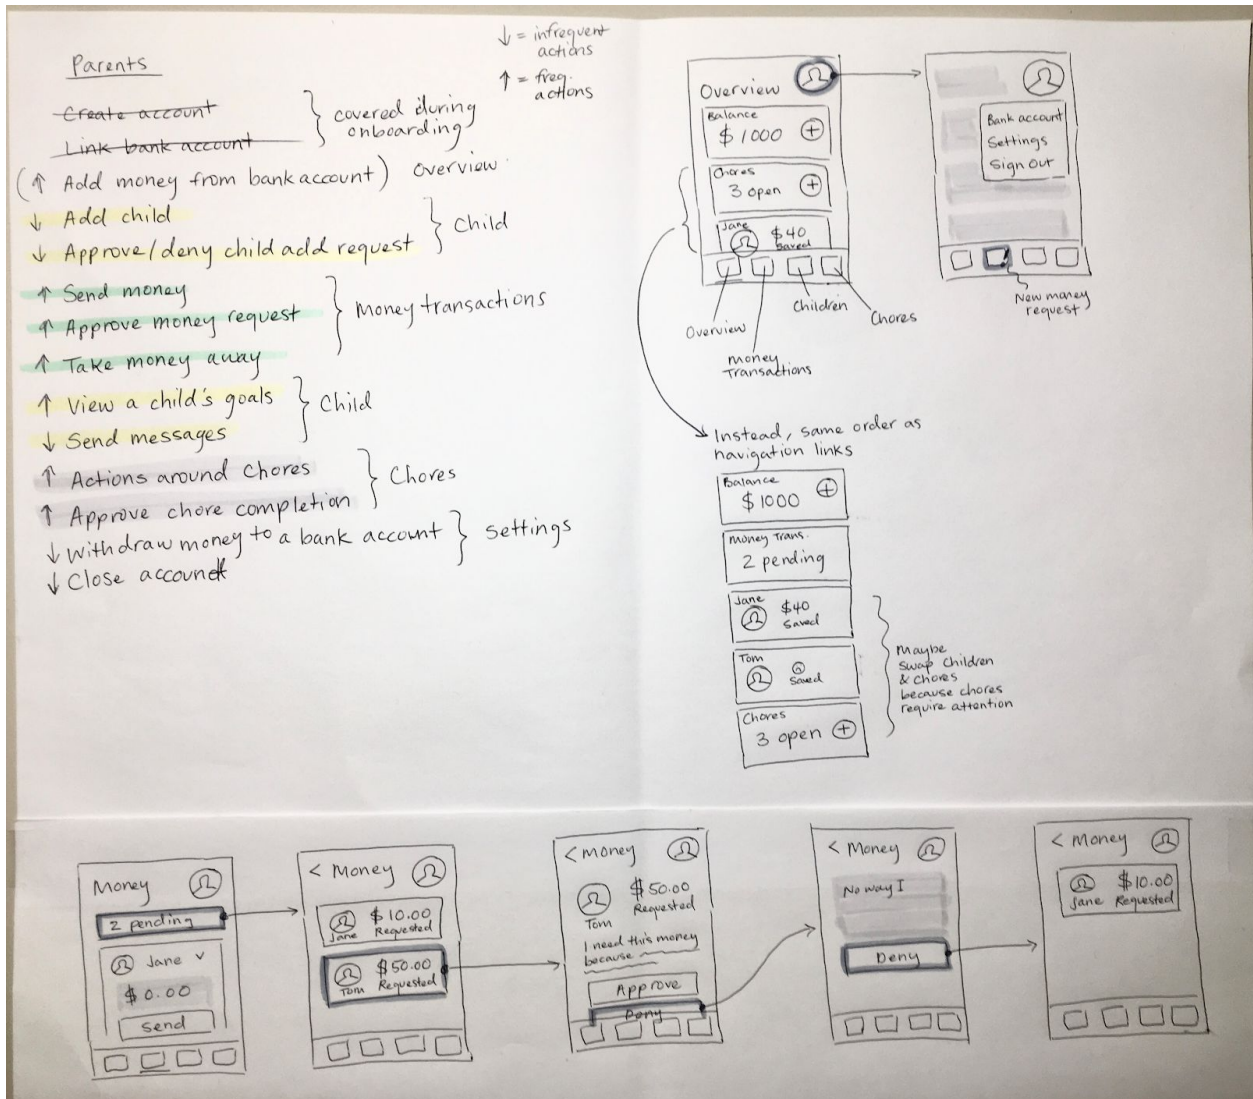 Parents
Create account
Link bank account
covered during
onboarding
↓ = infrequent
actions
↑ = freq.
actions
(↑ Add money from bank account) Overview
↓ Add child
↓ Approve/deny child add request
Child
↑ Send money
↑ Approve money request
↑ Take money away
Money transactions
↑ View a child's goals
↓ Send messages
Child
↑ Actions around Chores
↑ Approve chore completion
Chores
↓ Withdraw money to a bank account
↓ Close account
Settings
Overview
Balance
$1000 +
Chores
3 open +
Jane
$40
Saved
Overview
Money
Transactions
Children
Chores
Bank account
Settings
Sign Out
New money
request
Instead, same order as
navigation links
Balance
$1000 +
Money Trans.
2 pending
Jane
$40
Saved
Tom
Saved
Chores
3 open +
Maybe
swap children
& chores
because chores
require attention
Money
2 pending
Jane v
$0.00
Send
< Money
$10.00
Jane Requested
$50.00
Tom Requested
< Money
$50.00
Requested
Tom
I need this money
because
Approve
Deny
< Money
No way I
Deny
< Money
$10.00
Jane Requested